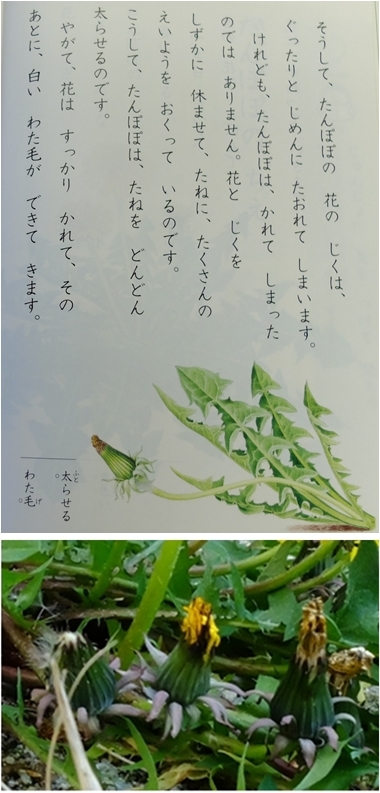 そうして、たんぽぽの　花の　じくは、
ぐったりと　じめんに　たおれて　しまいます。
けれども、たんぽぽは、かれて　しまった
のでは　ありません。花と　じくを
しずかに　休ませて、たねに、たくさんの
えいようを　おくって　いるのです。
こうして、たんぽぽは、たねを　どんどん
太らせるのです。
やがて、花は　すっかり　かれて、その
あとに、白い　わた毛が　できて　きます。
太らせる
ふと
わた毛
げ